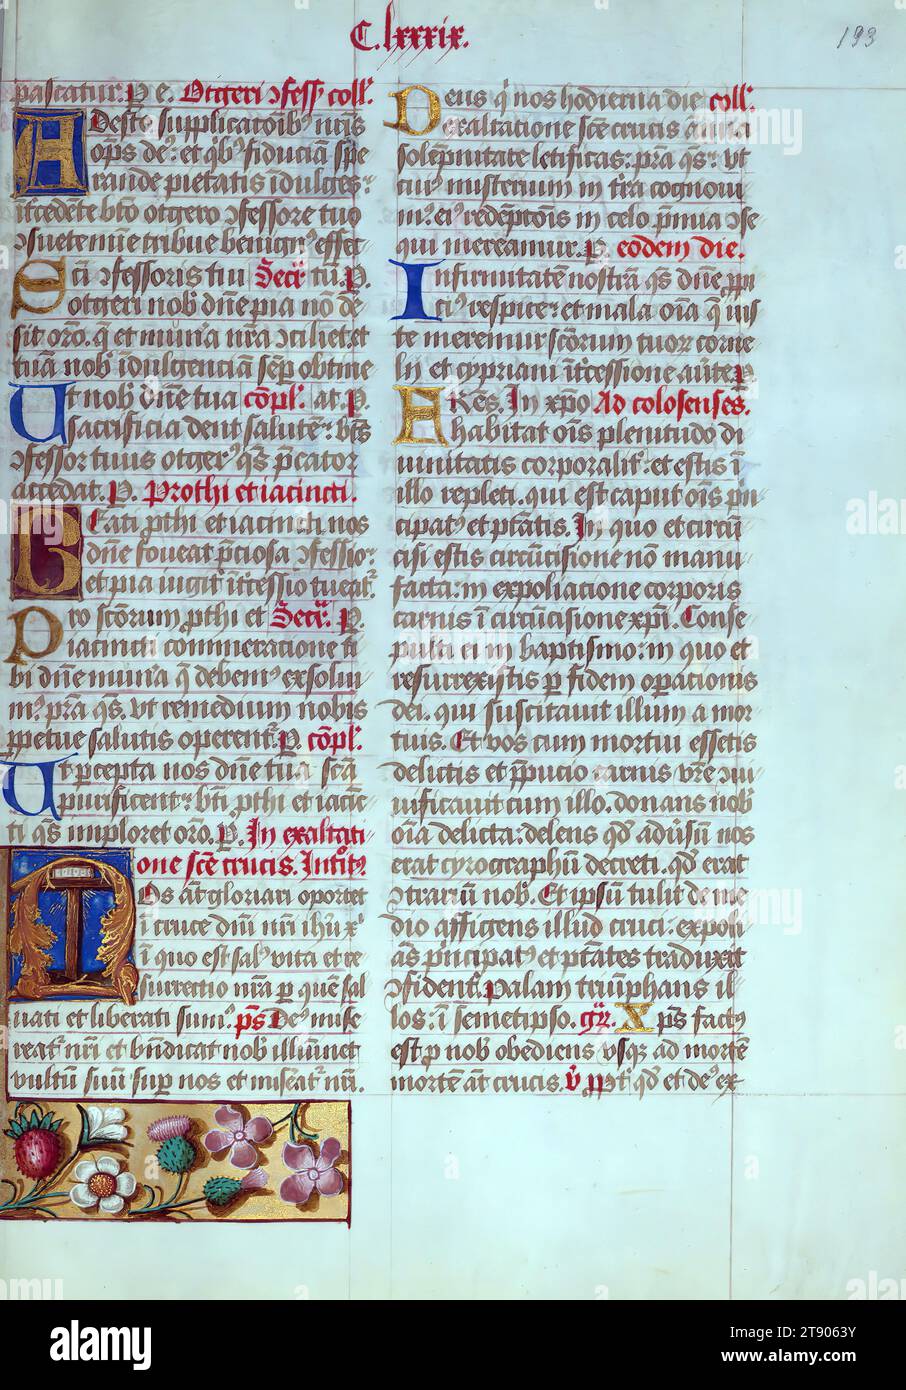 C. lxxxix.
193
pascatur. P e. Otgeri ↄfess' coll'.
Adesto supplicatōib' nr̄is
om̄ps de': et q̄b' fiduciā spe
randę pietatis īdulges:
ītcedēte bt̄o otgero ↄfessore tuo
ↄsuete mīe tribue benign' effec
Sc̄i ↄfessoris tui Secr̄: tū. P.
otgeri nob' dn̄e pia nō de
sit or̄o. q̄ et mun̄a nr̄a ↄciliet. et
tuā nob' īdulgenciā sēp obtine
Ut nob' dn̄e tua cōpl'. at. P.
sacrificia dent salutē: bt̄'
ↄfessor tuus otger' q̄s p̄cator
accedat. P. Prothi et iacincti.
Beati p̄thi et iacincti nos
dn̄e foueat p̄ciosa ↄfessio:
et pia iugit' īt̄cessio tueat'.
Pro sc̄orum p̄thi et Secr̄: P.
iacincti commem̄ratione ti
bi dn̄e mun̄ia q̄ debem' exsolui
m': p̄ra q̄s. vt remedium nobis
ppetue salutis operent'. P. cōpl'.
Ut p̄cepta nos dn̄e tua sc̄a
purificent: bt̄i p̄thi et iacic
ti q̄s imploret or̄o. P. In exaltati
one sc̄e crucis. Introit':
Nos āt gloriari oportet
ī cruce dn̄i nr̄i ihū x̄
ī quo est sal' vita et re
surrectio nr̄a p quē sal
uati et liberati sum'. p̄s De' mise
reat' nr̄i et bn̄dicat nob' illūinet
vultū suū sup nos et miseat' nr̄i.
Deus q̄ nos hodierna die coll'.
exaltatione sc̄e crucis ānua
solēpnitate letificas: p̄ra q̄s: vt
cui' misterium in t̄ra cognoui
m': ei' redēptōis in celo p̄mia ↄse
qui mereamur. P. eodem die.
Infirmitatē nostrā q̄s dn̄e ppi
ci' respice: et mala oīa q̄ ius
te meremur sc̄orum tuor' corne
lii et cypriani īt̄cessione aūte. P
Fr̄es. In xp̄o Ad colosenses.
habitat ois plenitudo di
uinitatis corporalit': et estis ī
illo repleti. qui est caput ois pri
cipat' et ptātis. In quo et circū
cisi estis circūcisione nō manu
facta: in expoliatione corporis
carnis ī circūcisione xp̄i. Conse
pulti ei in baptismo: in quo et
resurrexistis p fidem opationis
dei. qui suscitauit illum a mor
tuis. Et vos cum mortui essetis
delictis et p̄pucio carnis vr̄e ↄui
uificauit cum illo. donans nob'
oīa delicta: delens qd' adūsū nos
erat cyrographū decreti. qd' erat
ↄtrariū nob'. Et ipsū tulit de me
dio affigens illud cruci: expoli
ās p̄ncipat' et ptātes traduxit
ↄfident'. Palam triūphans il
los: ī semetipso. gr̄. Xp̄s fact'
est p nob' obediens vsq' ad mortē
mortē āt crucis. v̄ ppt' qd' et de' ex
alamy
Image ID: 2T9063Y
www.alamy.com